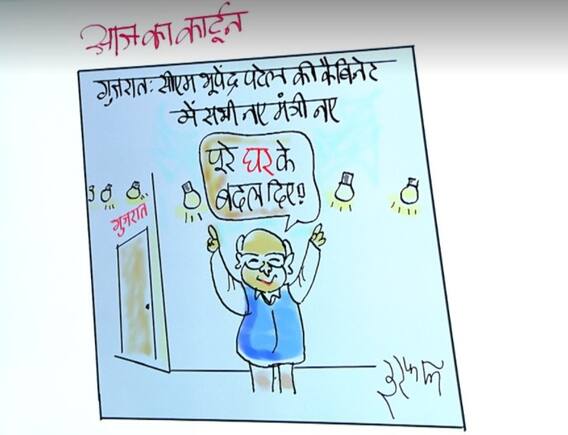 आज का कार्टून
गुजरात: सीएम भूपेंद्र पटेल की कैबिनेट
में सभी नए मंत्री नए
पूरे घर के
बदल दिए!
गुजरात
इरफ़ान